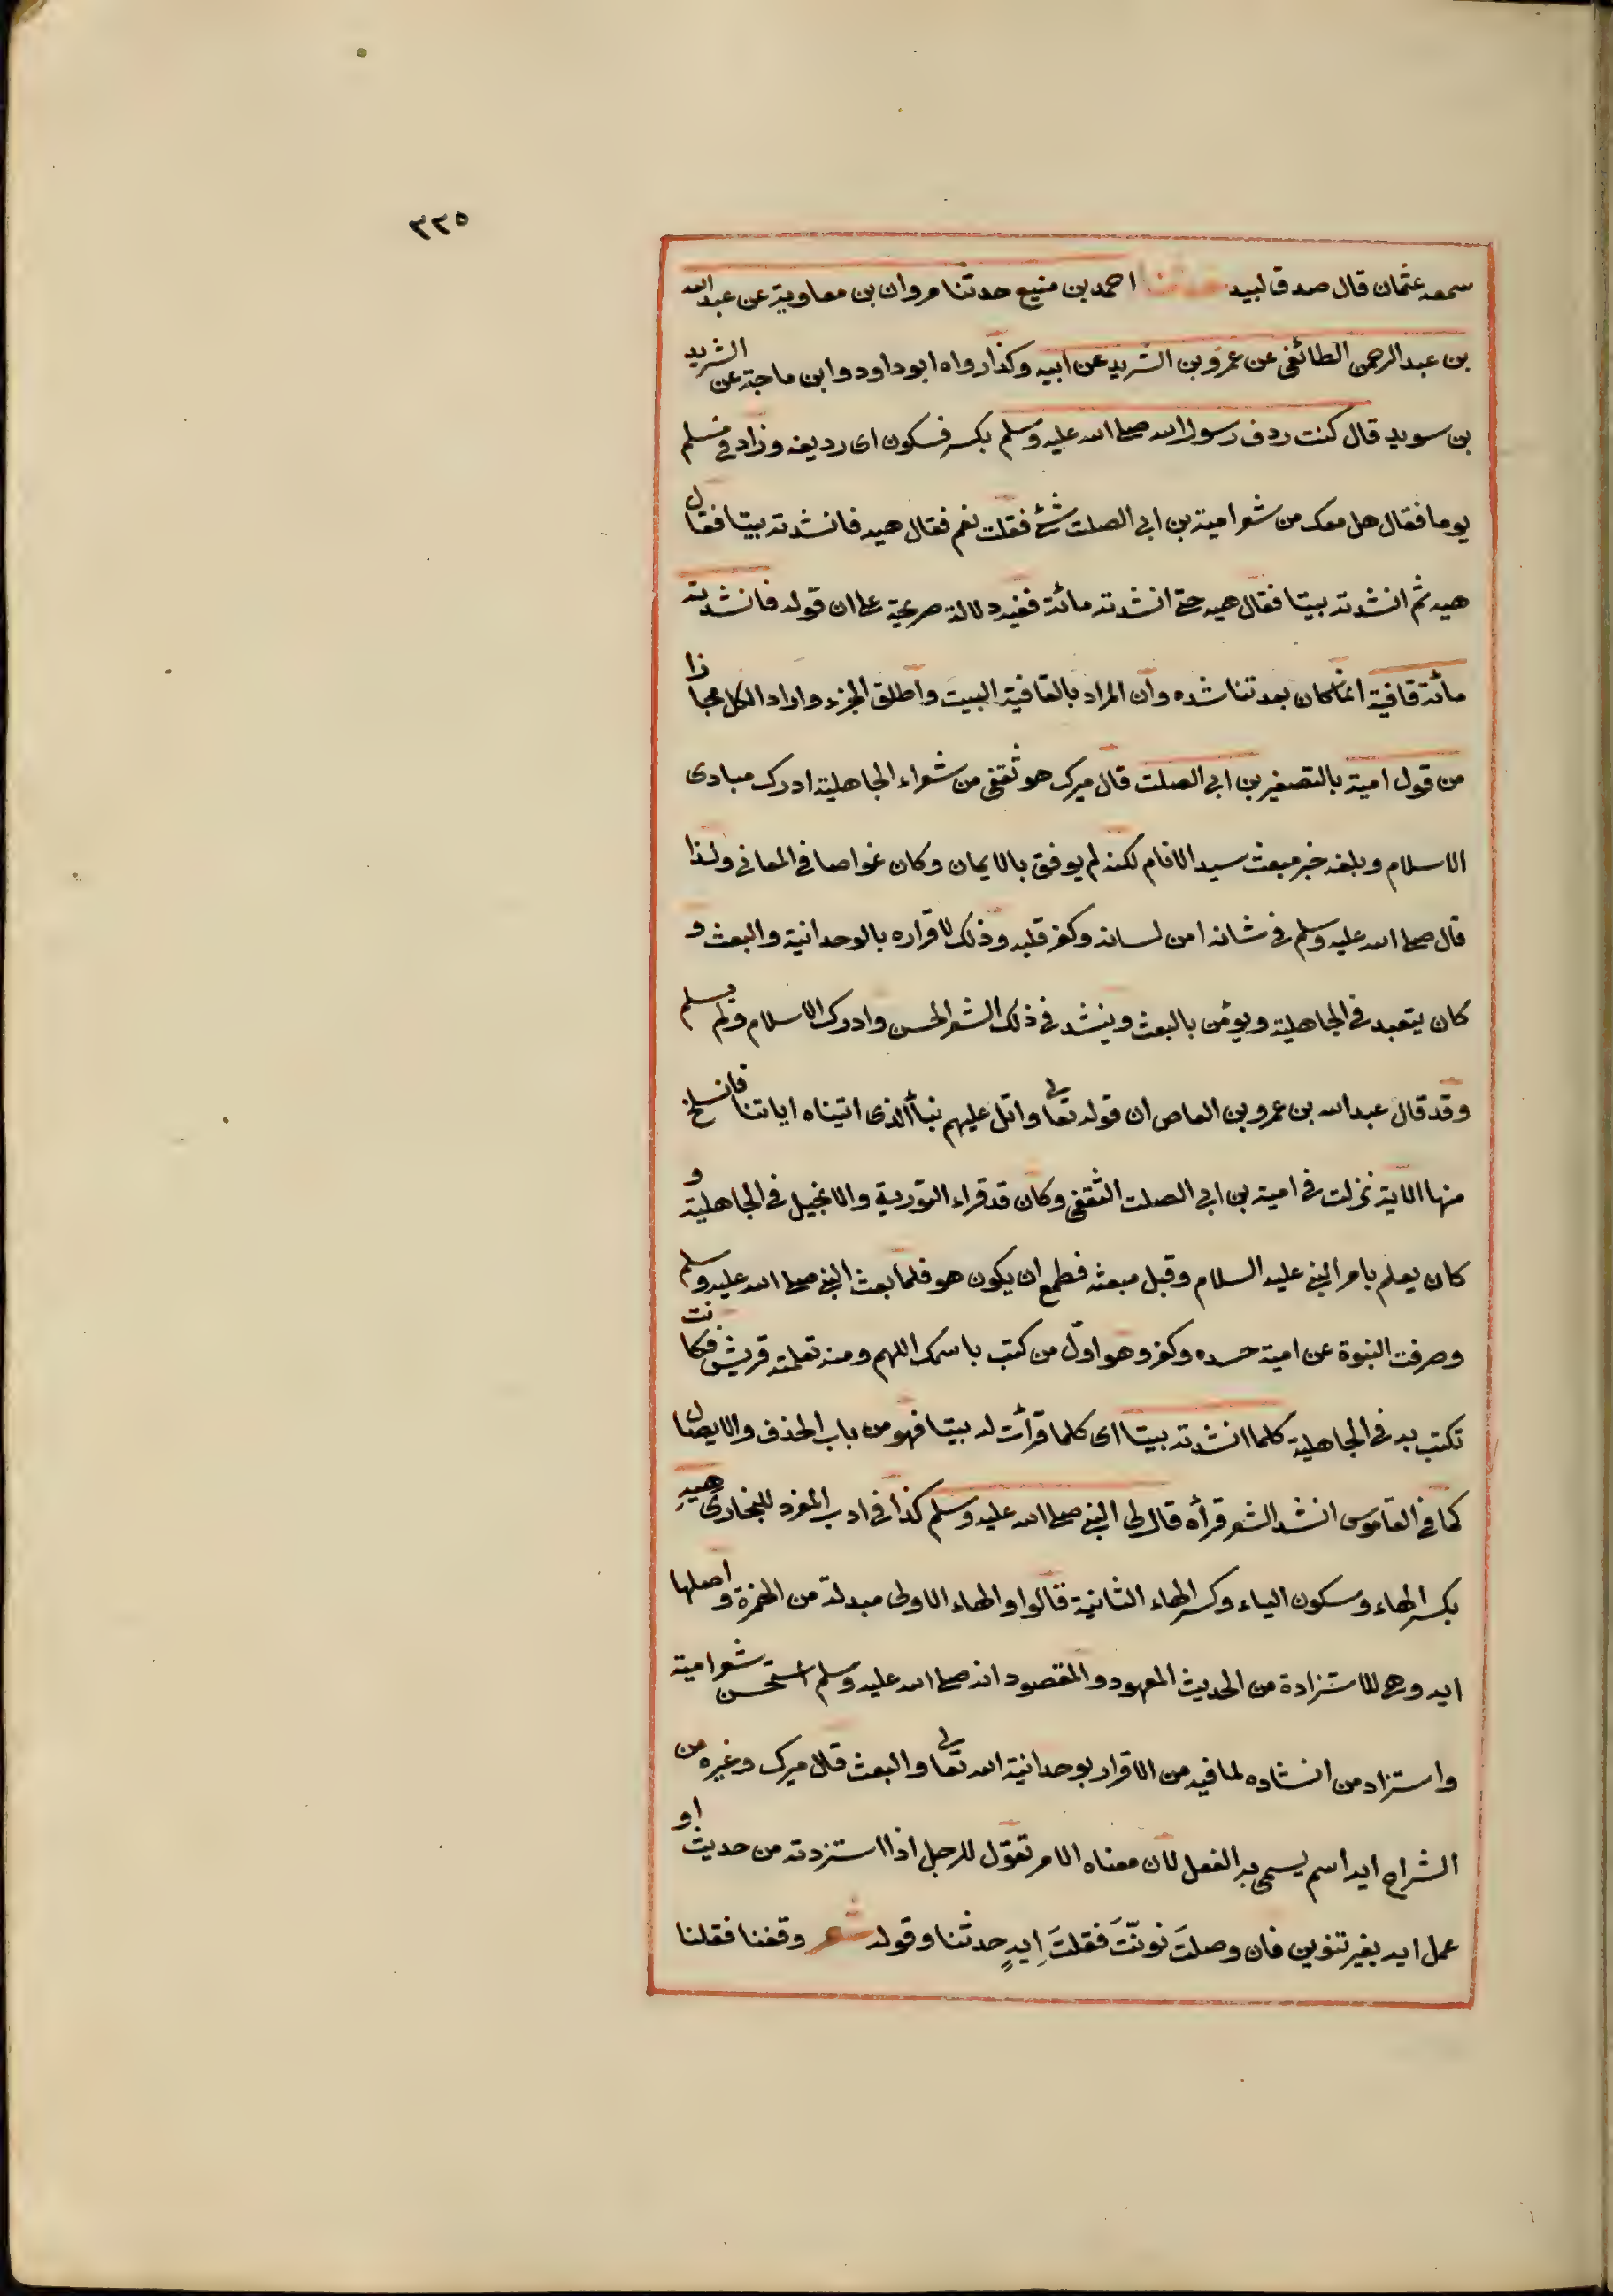 ٣٣٥
سمعه عثمان قال صدق لبيد حدثنا احمد بن منيع حدثنا مروان بن معاوية عن عبد الله
بن عبد الرحمن الطائفى عن عمرو بن الشريد عن ابيه وكذا رواه ابو داود وابن ماجة عن الشريد
بن سويد قال كنت ردف رسول الله صلى الله عليه وسلم بكسر فسكون اى رديفه وزاد فى مسلم
يوما فقال هل معك من شعر امية بن ابى الصلت شئ فقلت نعم فقال هيه فانشدته بيتا فقال
هيه ثم انشدته بيتا فقال هيه حتى انشدته مائة ففيه دلالة صريحة على ان قوله فانشدته
مائة قافية انما كان بعد تناشده وان المراد بالقافية البيت واطلق الجزء واراد الكل مجازا
من قول امية بالتصغير بن ابى الصلت قال ميرك هو ثقفى من شعراء الجاهلية ادرك مبادى
الاسلام وبلغه خبر مبعث سيد الانام لكنه لم يوفق بالايمان وكان غواصا فى المعانى ولذا
قال صلى الله عليه وسلم فى شانه امن لسانه وكفر قلبه وذلك لاقراره بالوحدانية والبعث و
كان يتعبد فى الجاهلية ويؤمن بالبعث وينشد فى ذلك الشعر الحسن وادرك الاسلام ولم يسلم
وقد قال عبد الله بن عمرو بن العاص ان قوله تعالى واتل عليهم نبأ الذى اتيناه اياتنا فانسلخ
منها الاية نزلت فى امية بن ابى الصلت الثقفى وكان قد قراء التورية والانجيل فى الجاهلية و
كان يعلم بامر النبى عليه السلام وقبل مبعثه فطمع ان يكون هو فلما بعث النبى صلى الله عليه وسلم
وصرفت النبوة عن امية حسده وكفر وهو اوّل من كتب باسمك اللهم ومنه تعلمته قريش فكانت
تكتب به فى الجاهلية كلما انشدته بيتا اى كلما قرأت له بيتا فهو من باب الحذف والايصال
كما فى القاموس انشد الشعر قرأه قال لى النبى صلى الله عليه وسلم كذا فى ادب المفرد للبخارى هيهِ
بكسر الهاء وسكون الياء وكسر الهاء الثانية قالوا والهاء الاولى مبدلة من الهمزة واصلها
ايه وهى للاستزادة من الحديث المعهود والمقصود انه صلى الله عليه وسلم استحسن شعر امية
واستزاد من انشاده لما فيه من الاقرار بوحدانية الله تعالى والبعث قال ميرك وغيره من
الشراح ايه اسم يسمى به الفعل لان معناه الامر تقول للرجل اذا استزدته من حديث او
عمل ايه بغير تنوين فان وصلتَ نونّتَ فقلتَ اِيهٍ حدثنا وقوله شعر وقفنا فقلنا